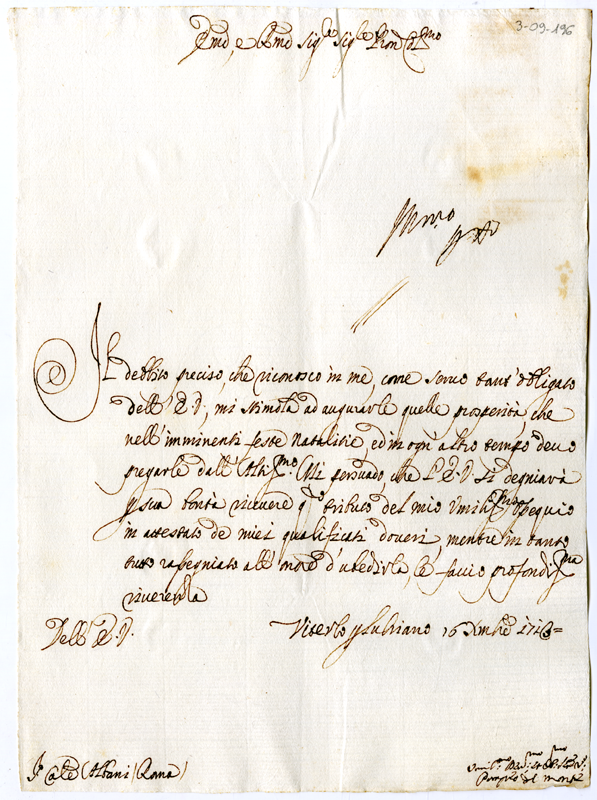 3-09-196
Em̃o, e Rm̃o Sigʳᵉ Sigʳᵉ Pron Colᵐᵒ
Il debbito preciso, che riconosco in me, come servo tant'obligato
dell'E.V., mi stimola ad augurarle quelle prosperità, che
nell'imminenti feste Natalitie, ed in ogni altro tempo devo
pregarle dall'Altisᵐᵒ. Mi persuado, che l'E.V. si degniarà
p sua bontà ricevere qᵗᵒ tributo del mio Umilisᵐᵒ ossequio
in attestato de miei qualificati doveri, mentre in tanto
tutto rassegniato all'onore d'ubedirla, le faccio profondisᵐᵃ
riverenza
Dell'E.V.
Viterbo p Lubriano 16 Xmbre 171
Sʳ Carᵉ Albani / Roma